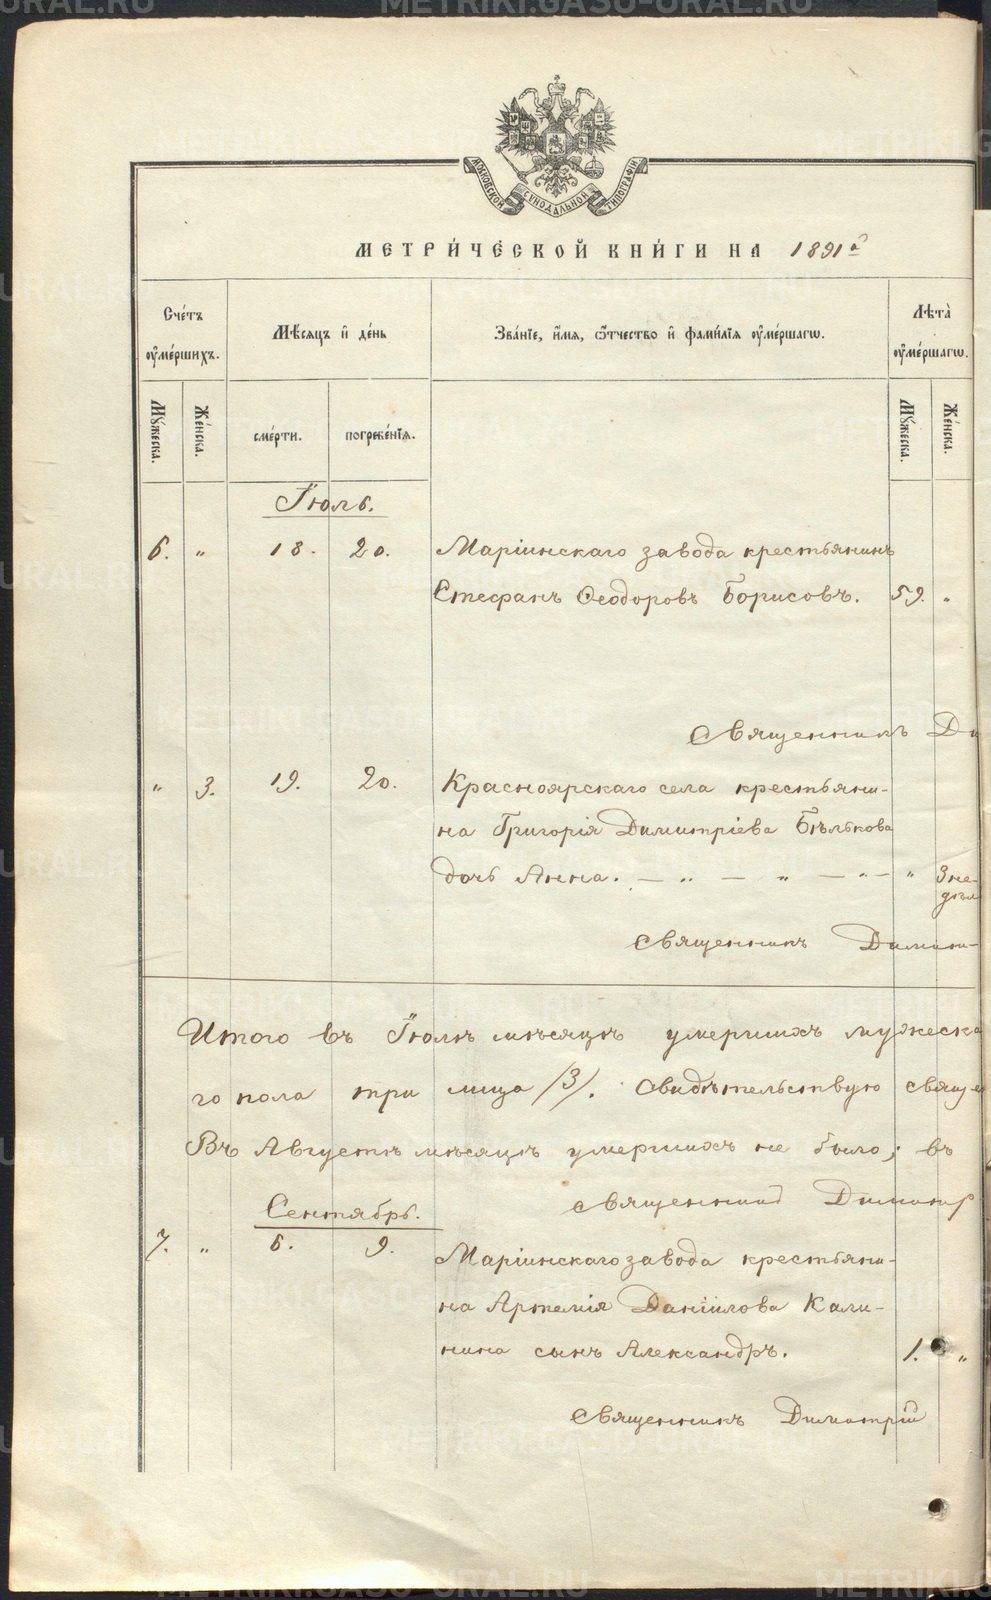 METRIKI.GASO-URAL.RU
МОСКОВСКОЙ СѴНОДАЛЬНОЙ ТИПОГРАФІИ
МЕТРИ́ЧЕСКОЙ КНИ́ГИ НА 1891й
Сче́тъ оу҆ме́ршихъ.
Мѣ́сѧцъ и҆ де́нь
Зва́нїе, и҆́мѧ, ѻ҆́тчество и҆ фами́лїѧ оу҆ме́ршагѡ.
Лѣта̀ оу҆ме́ршагѡ.
Мꙋ́жеска.
Же́нска.
сме́рти.
погребе́нїѧ.
Мꙋ́жеска.
Же́нска.
Іюль.
6. „ 18. 20. Маріинскаго завода крестьянинъ
Стефанъ Ѳеодоровъ Борисовъ. 59. „
Священникъ Ди
„ 3. 19. 20. Красноярскаго села крестьяни-
на Григорія Димитріева Бѣлькова
дочь Анна. — „ — „ — „ — „ 3 не-
дѣл
Священникъ Димит-
Итого въ Іюлѣ мѣсяцѣ умершихъ мужеска
го пола три лица /3/. Свидѣтельствую свяще
Въ Августѣ мѣсяцѣ умершихъ не было; въ
Священник Димитр
Сентябрь.
7. „ 6. 9. Маріинскаго завода крестьяни-
на Артемія Даніилова Кали-
нина сынъ Александръ. 1. „
Священникъ Димитрій